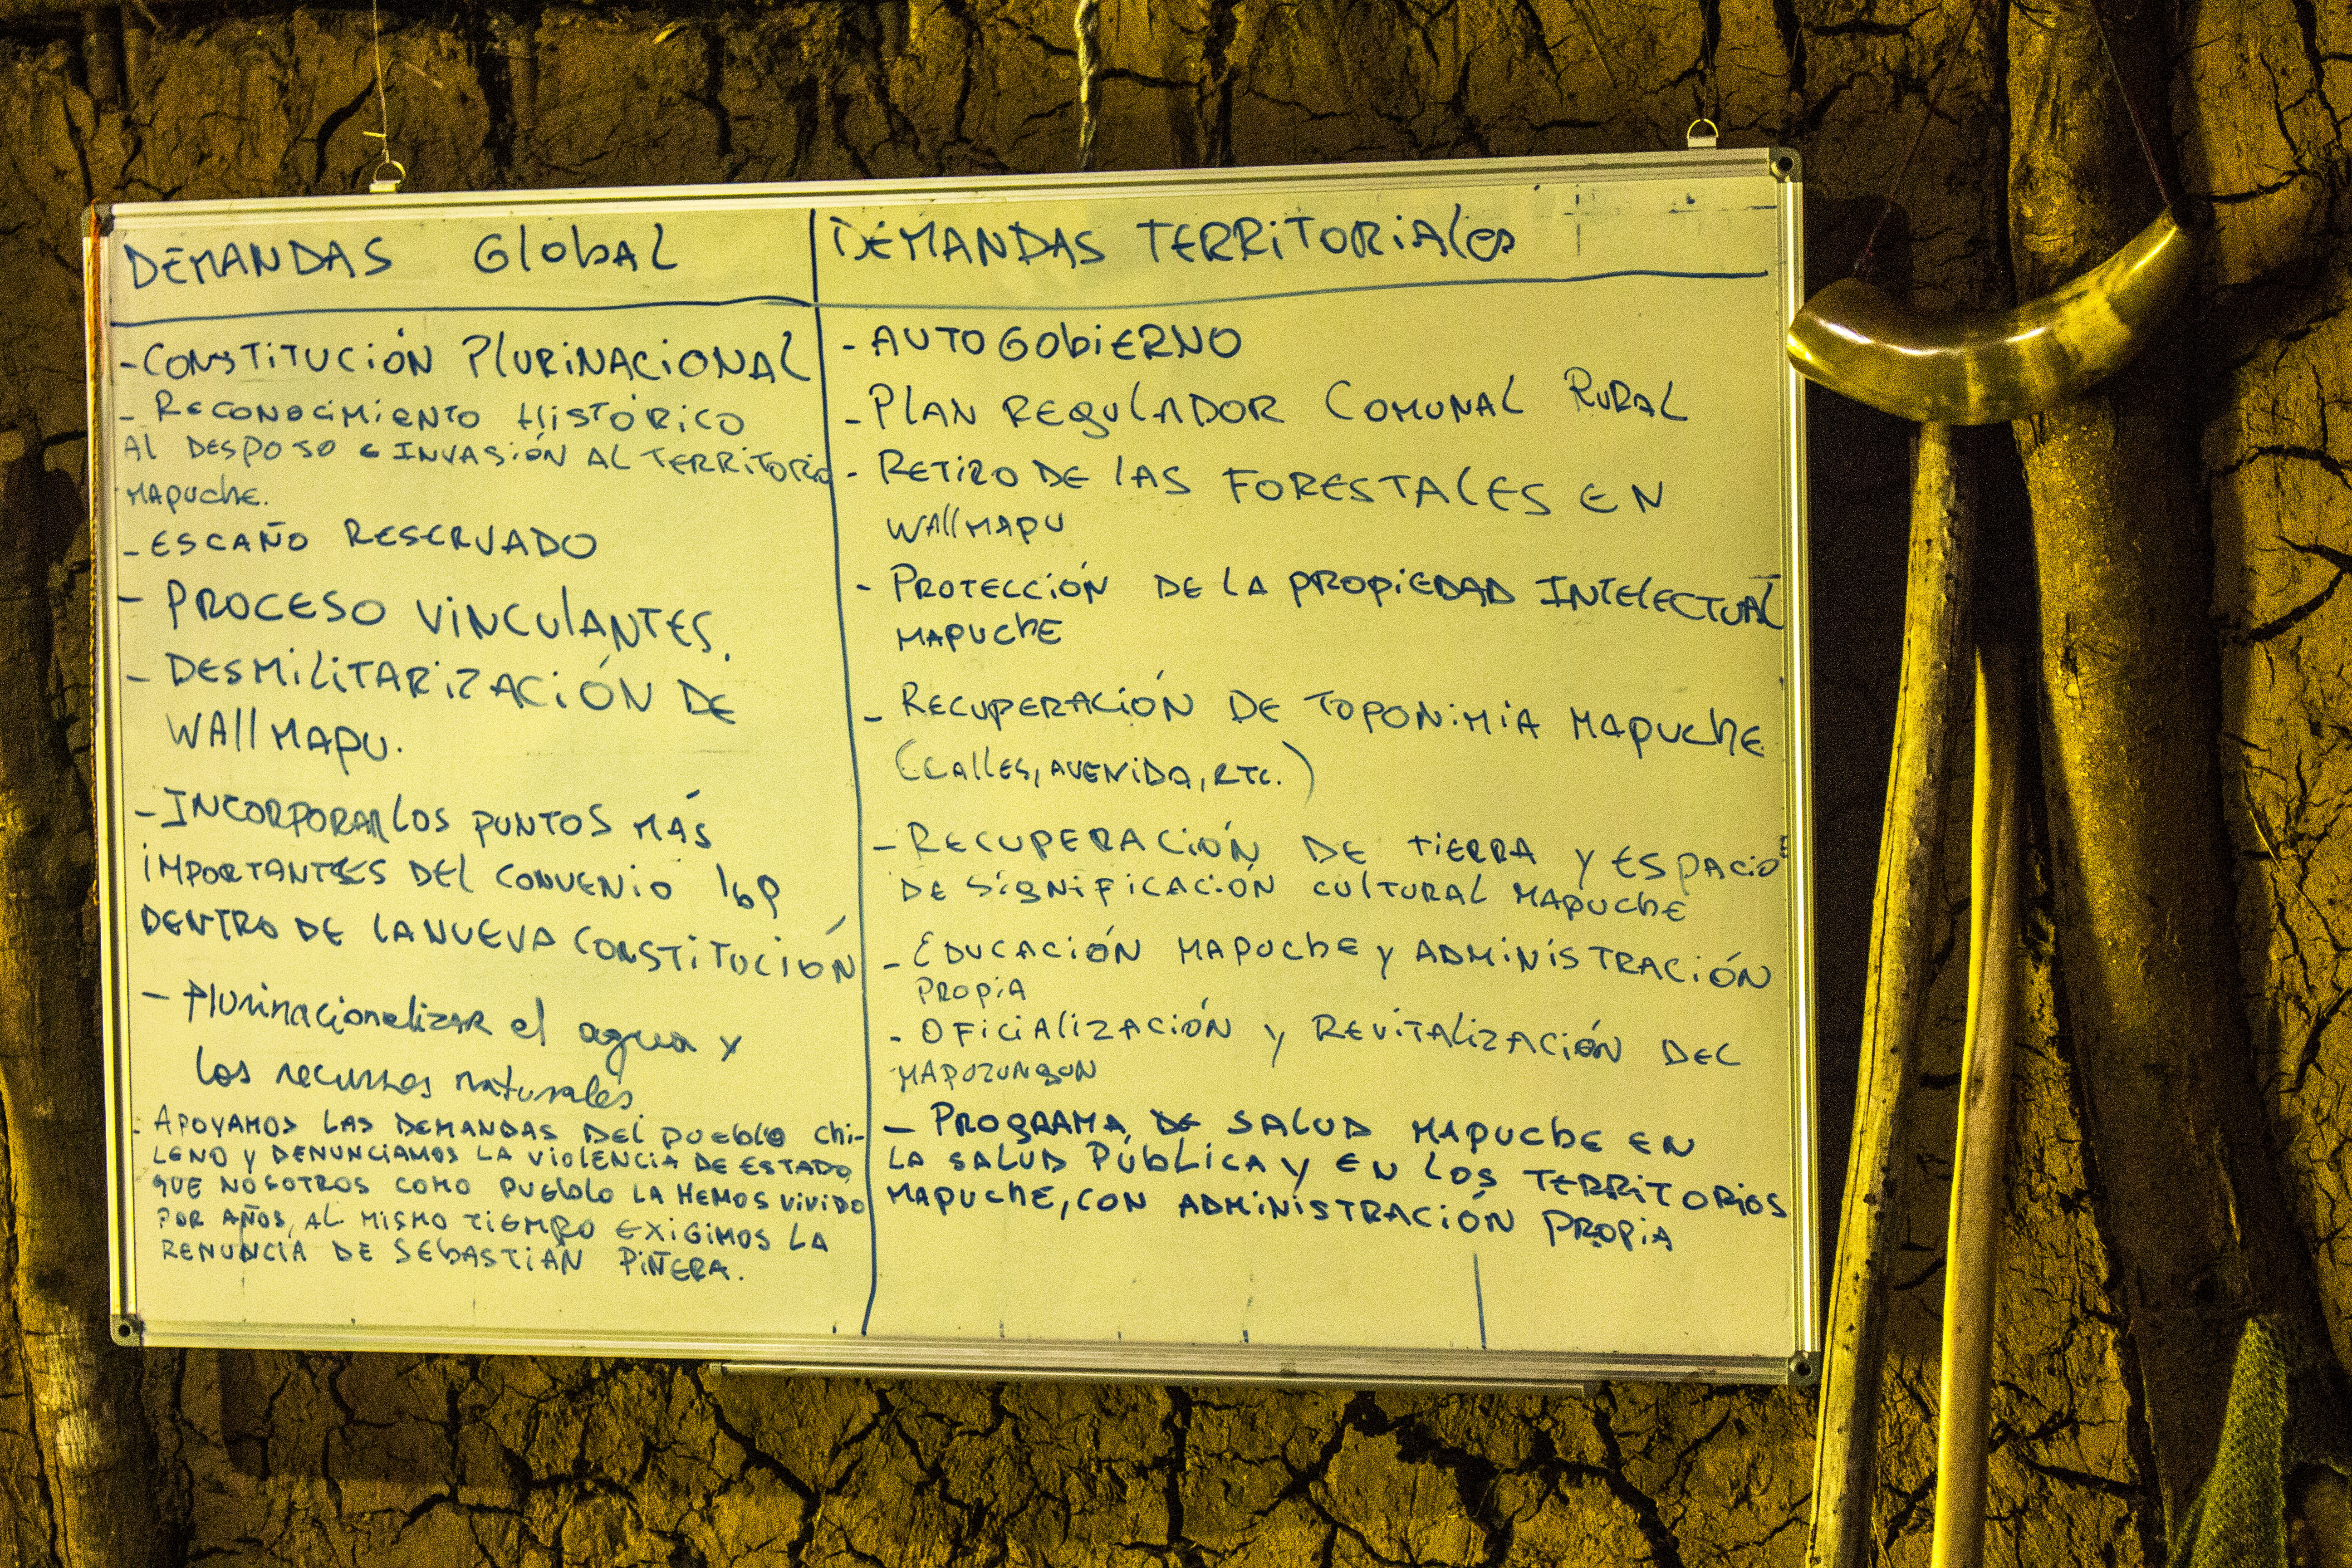 DEMANDAS Global
- CONSTITUCIÓN PlURiNACiONAL
- RECONOCiMiENTO HiSTÓRiCO
Al DESPOJO e INVASIÓN AL TERRiTORiO
MAPUChE.
- ESCAÑO RESERVADO
- PROCESO ViNCUlANTES.
- DESMiliTARiZACiÓN DE
WAllMAPU.
- INCORPORAR lOS PUNTOS MÁS
iMPORTANTES DEl CONVENiO 169
DENTRO DE LA NUEVA CONSTiTUCiÓN
- Plurinacionalizar el agua y
los recursos naturales
- APOYAMOS LAS DEMANDAS DEL PUEblO Chi-
LENO Y DENUNCIAMOS LA ViOlENCiA DE ESTADO,
QUE NOSOTROS COMO PUEblO LA HEMOS ViViDO
POR AÑOS, AL MISMO TiEMPO EXiGiMOS LA
RENUNCiA DE SEbASTiÁN PiÑERA.
DEMANDAS TERRiTORiAles
- AUTOGObiERNO
- PlAN REgUlADOR COMUNAL RURAL
- RETiRO DE lAS FORESTAlES EN
WAllMAPU
- PROTECCiÓN DE LA PROPiEDAD INTElECTUAL
MAPUChE
- RECUPERACiÓN DE TOPONiMiA MAPUChE
(CAllES, AVENiDA, ETC.)
- RECUPERACiÓN DE TiERRA Y ESPACiOS
DE SigNiFiCACiÓN CULTURAL MAPUChE
- EDUCACiÓN MAPUChE Y ADMiNiSTRACiÓN
PROPiA
- OFiCiAliZACiÓN Y REViTAliZACiÓN DEL
MAPUZUNgUN
- PROgRAMA DE SAlUD MAPUChE EN
LA SAlUD PÚbLiCA Y EN LOS TERRiTORiOS
MAPUChE, CON ADMiNiSTRACiÓN PROPiA